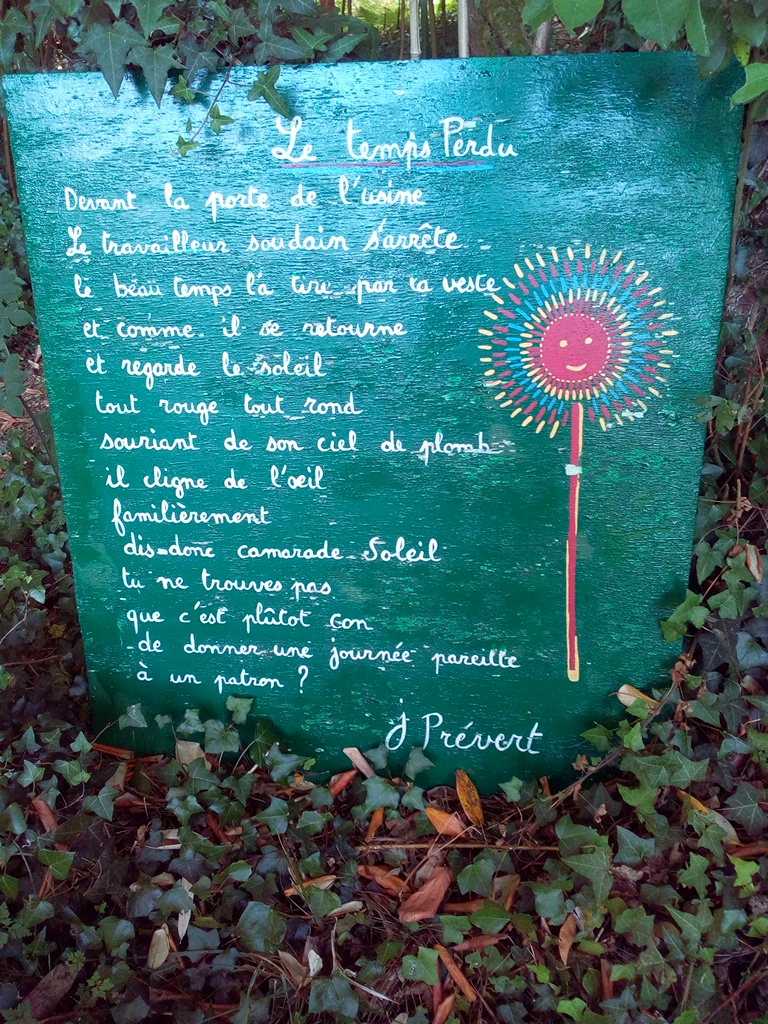 Le temps Perdu
Devant la porte de l'usine
Le travailleur soudain s'arrête
le beau temps l'a tiré par la veste
et comme il se retourne
et regarde le soleil
tout rouge tout rond
souriant de son ciel de plomb
il cligne de l'oeil
familièrement
dis-donc camarade Soleil
tu ne trouves pas
que c'est plûtot con
de donner une journée pareille
à un patron ?
j Prévert